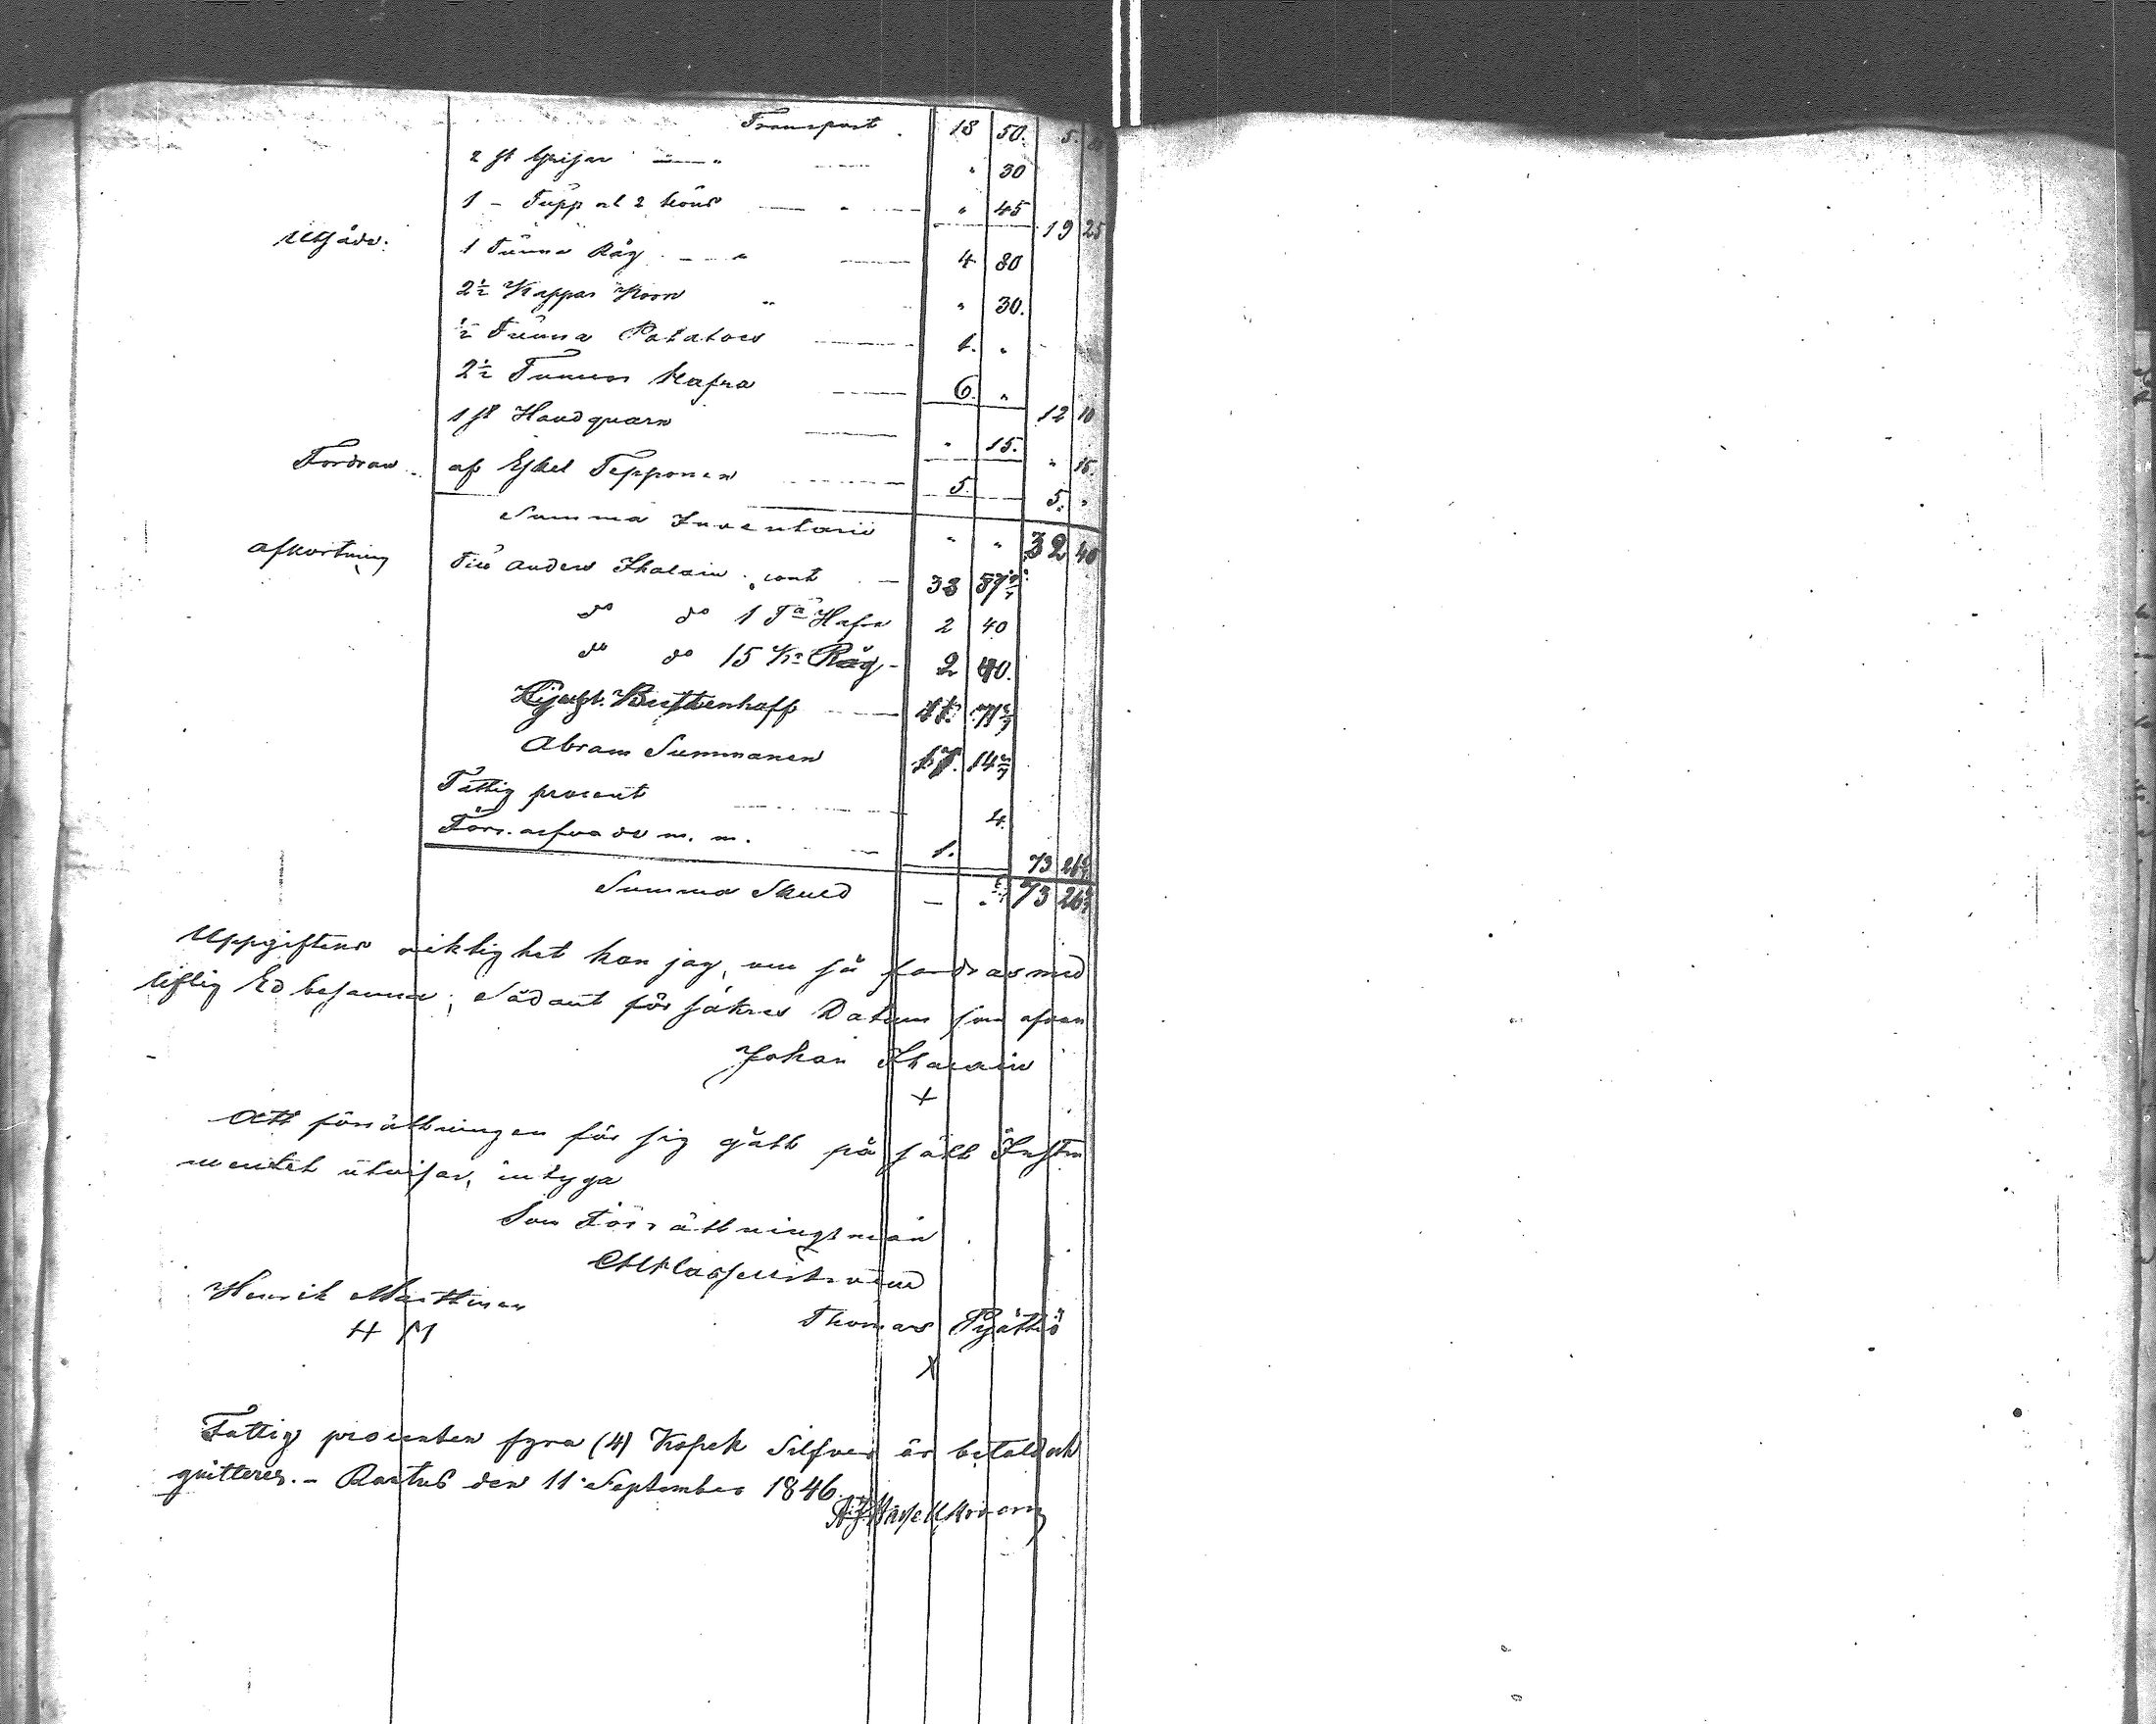 Transport . 18 50. 5.
2 st Grisar — " 30
1 - Tupp och 2 höns — " 45 19 25
Utsäde. 1 Tunna Råg — 4 80
2½ Kappar Korn " " 30.
½ Tunna Potatoes 1. "
2½ Tunnor Hafra 6. " 12 10
1 st Handquarn " 15. " 15.
Fordran af Eskel Tepponen 5. 5. "
Summa Inventarii " " 32 40
afkortning Till Anders Ihalain cont — 33 57 1/7
do do 1 Ta Hafra 2 40
do do 15 Kr Råg - 2 40.
71 3/7
Abram Summanen 17. 14 2/7
Fattig procent 4.
Förr. arfvode m. m. 1. 73 26 6/7
Summa Skuld — . 73 26 6/7
Uppgiftens riktighet kan jag, om så fordras med
liflig Ed besanna, Sådant försäkras Datum som ofvan
Johan Ihalain
+
Att förrättningen för sig gått på sätt Instru
mentet utvisar, intyga
Som Förrättningsmän
Henrik Marttinen Thomas Pyättiö
H M X
Fattig procenten fyra (4) Kopek Silfver är betald och
quitteres. - Rantus den 11 September 1846.